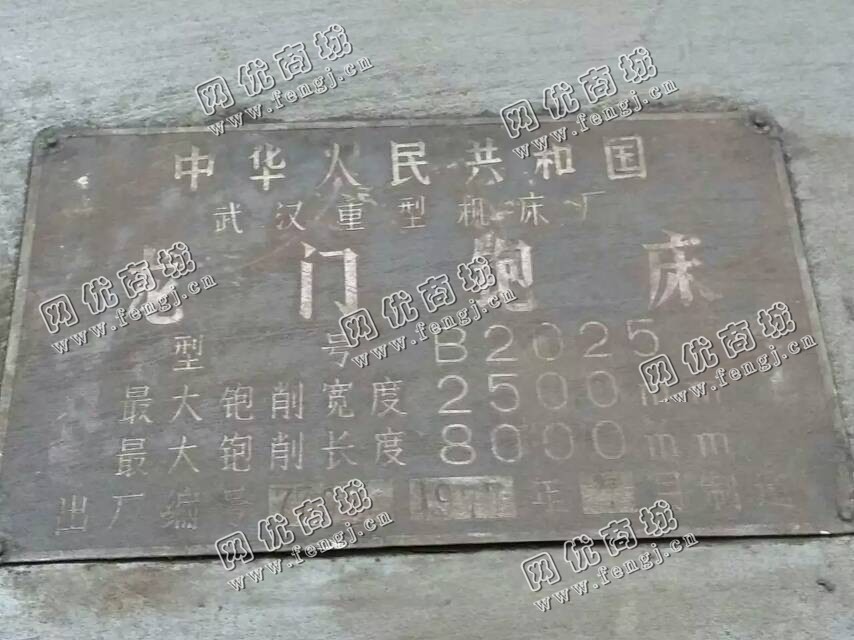 中华人民共和国
武汉重型机床厂
龙门铇床
型号 B2025
最大铇削宽度 2500mm
最大铇削长度 8000mm
出厂编号 年 月制造
网优商城
www.fengj.cn
网优商城
www.fengj.cn
网优商城
www.fengj.cn
网优商城
www.fengj.cn
网优商城
www.fengj.cn
网优商城
www.fengj.cn
网优商城
www.fengj.cn